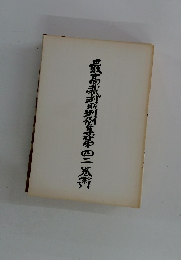 最高裁判所判例集第四二巻